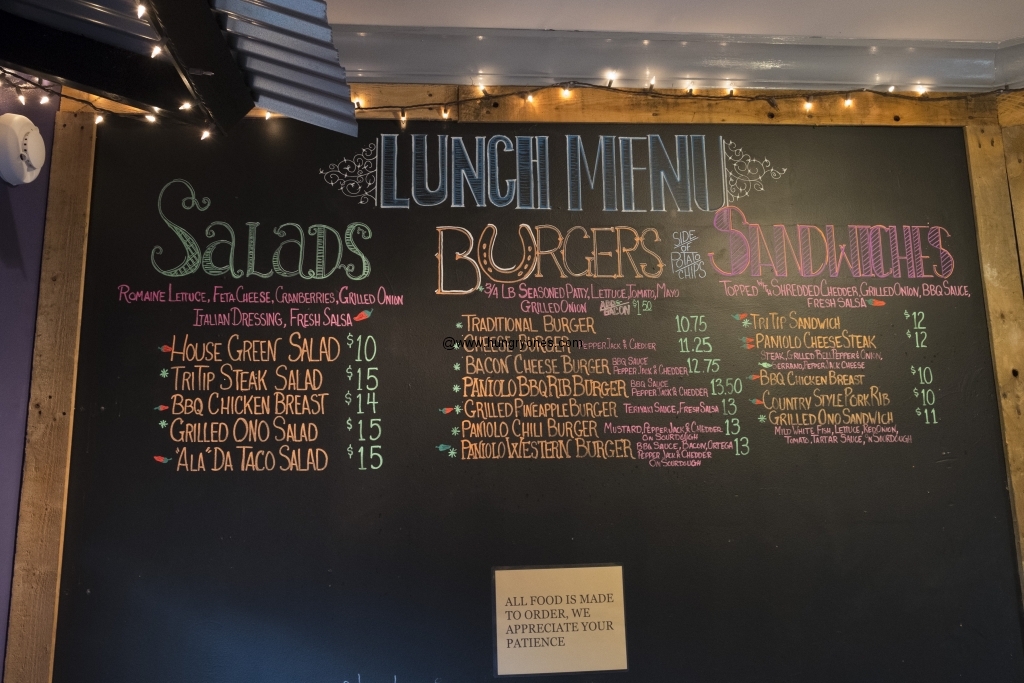 LUNCH MENU
SALADS
ROMAINE LETTUCE, FETA CHEESE, CRANBERRIES, GRILLED ONION
ITALIAN DRESSING, FRESH SALSA
HOUSE GREEN SALAD $10
TRI TIP STEAK SALAD $15
BBQ CHICKEN BREAST $14
GRILLED ONO SALAD $15
"ALA" DA TACO SALAD $15
BURGERS
SIDE
OF
POTATO
CHIPS
3/4 LB SEASONED PATTY, LETTUCE, TOMATO, MAYO
GRILLED ONION ADD BACON $1.50
TRADITIONAL BURGER 10.75
BURGER PEPPER JACK & CHEDDER 11.25
BACON CHEESE BURGER BBQ SAUCE PEPPER JACK & CHEDDER 12.75
PANIOLO BBQ RIB BURGER BBQ SAUCE PEPPER JACK & CHEDDER 13.50
GRILLED PINEAPPLE BURGER TERIYAKI SAUCE, FRESH SALSA 13
PANIOLO CHILI BURGER MUSTARD, PEPPER JACK & CHEDDER ON SOURDOUGH 13
PANIOLO WESTERN BURGER BBQ SAUCE, BACON, ORTEGA PEPPER JACK & CHEDDER ON SOURDOUGH 13
SANDWICHES
TOPPED W/ SHREDDED CHEDDER, GRILLED ONION, BBQ SAUCE,
FRESH SALSA
TRI TIP SANDWICH $12
PANIOLO CHEESE STEAK $12
STEAK, GRILLED BELL PEPPER & ONION,
SERRANO, PEPPER JACK CHEESE
BBQ CHICKEN BREAST $10
COUNTRY STYLE PORK RIB $10
GRILLED ONO SANDWICH $11
MILD WHITE FISH, LETTUCE, RED ONION,
TOMATO, TARTAR SAUCE, 'N SOURDOUGH
ALL FOOD IS MADE
TO ORDER, WE
APPRECIATE YOUR
PATIENCE